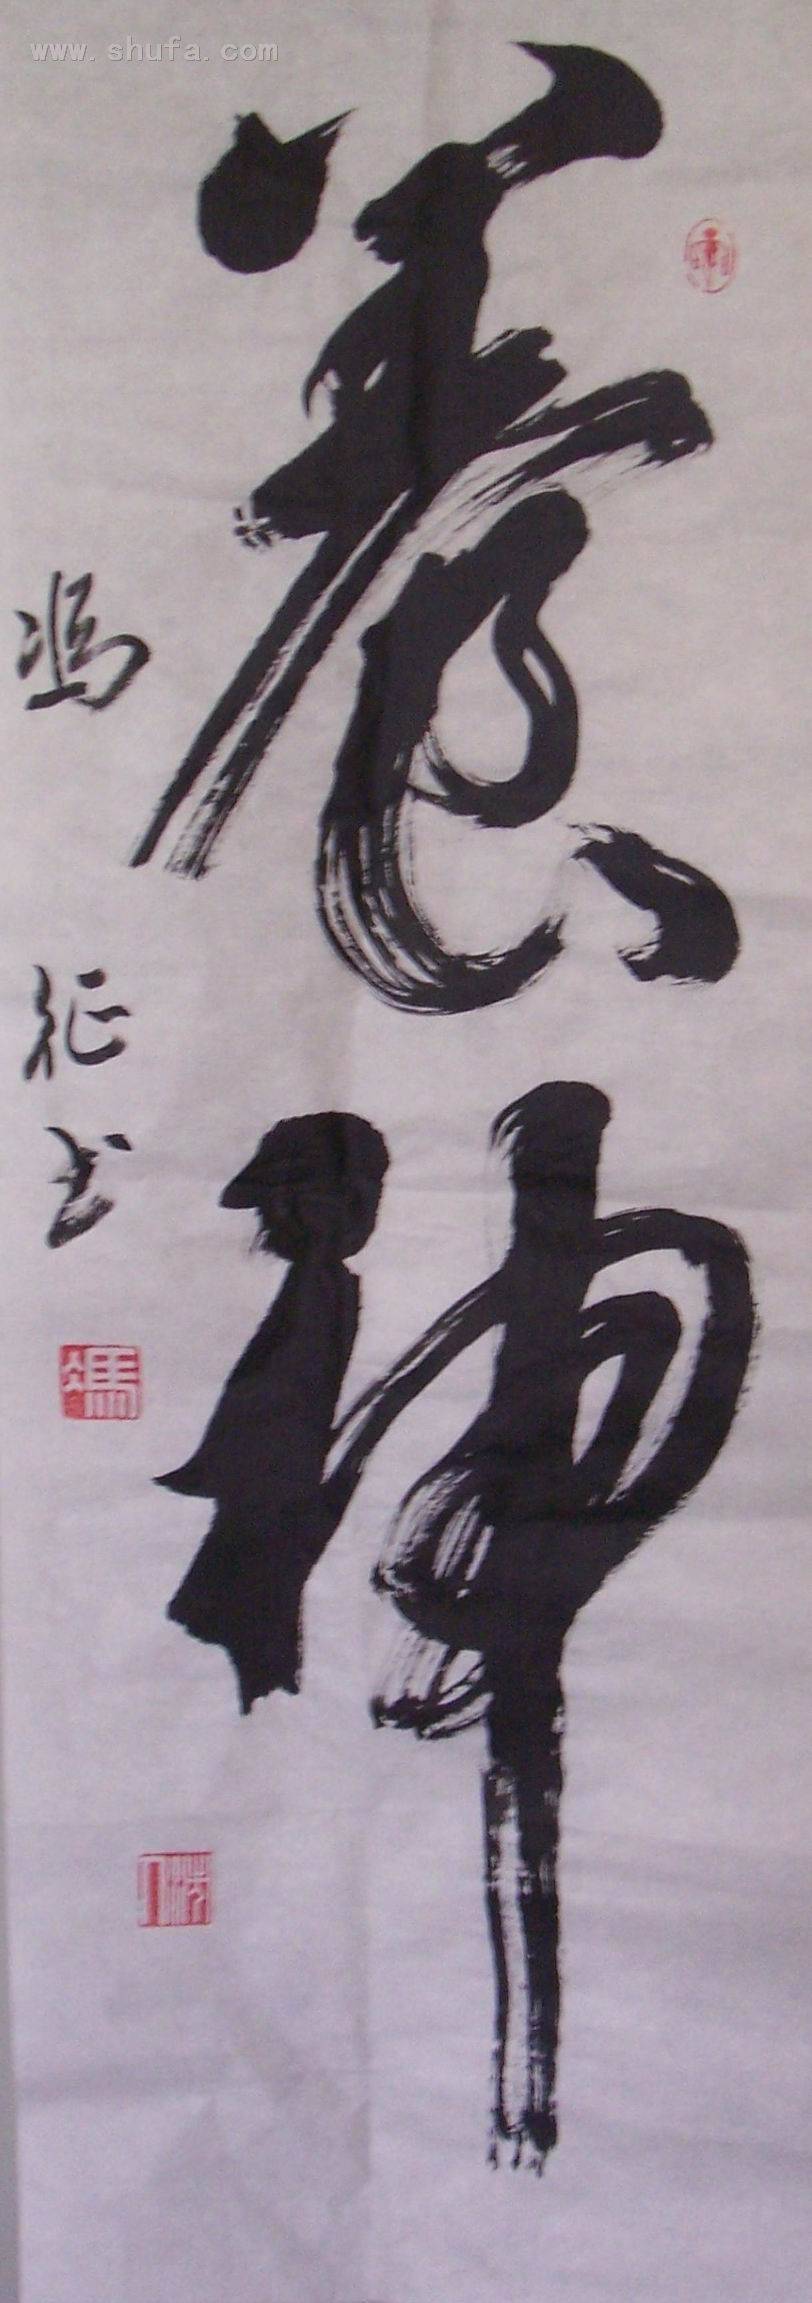 www.shufa.com
養神
冯征书